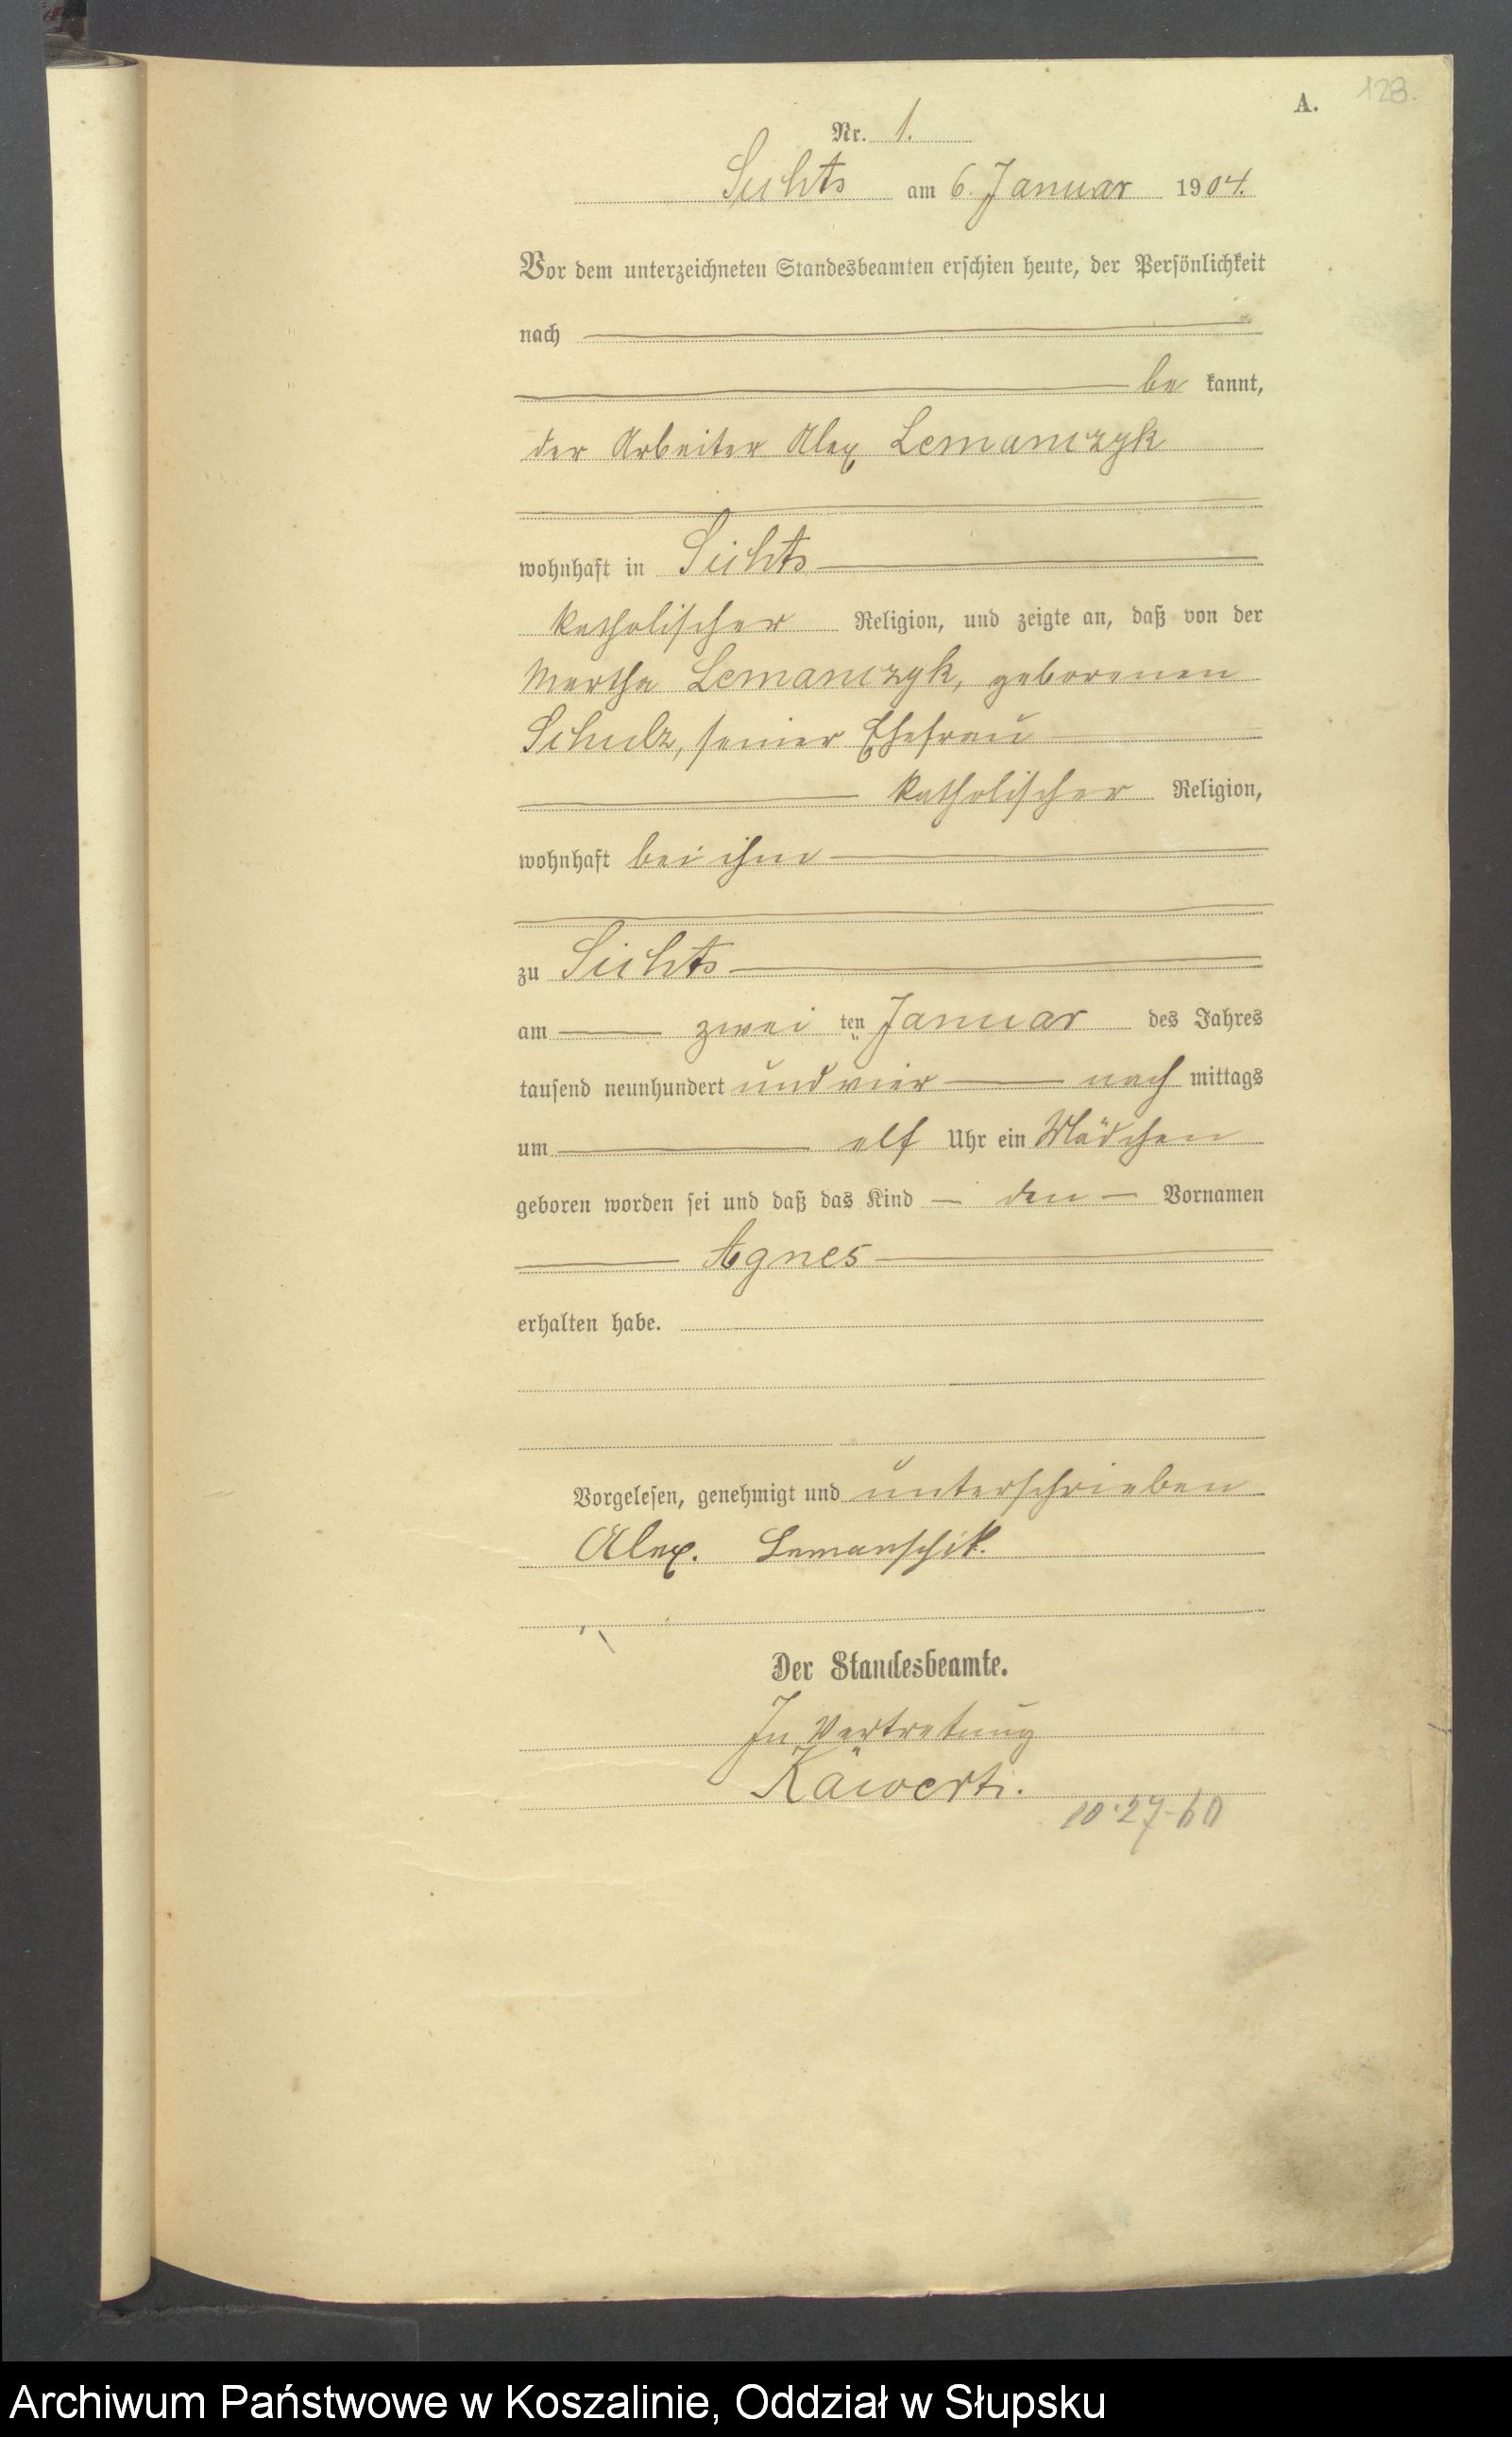 A. 128.
Nr. 1.
Sichts am 6. Januar 1904.
Vor dem unterzeichneten Standesbeamten erschien heute, der Persönlichkeit
nach
be kannt,
der Arbeiter Alex Lemanczyk
wohnhaft in Sichts
katholischer Religion, und zeigte an, daß von der
Martha Lemanczyk, geborenen
Schulz, seiner Ehefrau
katholischer Religion,
wohnhaft bei ihm
zu Sichts
am zwei ten Januar des Jahres
tausend neunhundert und vier nach mittags
um elf Uhr ein Mädchen
geboren worden sei und daß das Kind den Vornamen
Agnes
erhalten habe.
Vorgelesen, genehmigt und unterschrieben
Alex. Lemanschik.
Der Standesbeamte.
In Vertretung
10·27-60
Archiwum Państwowe w Koszalinie, Oddział w Słupsku